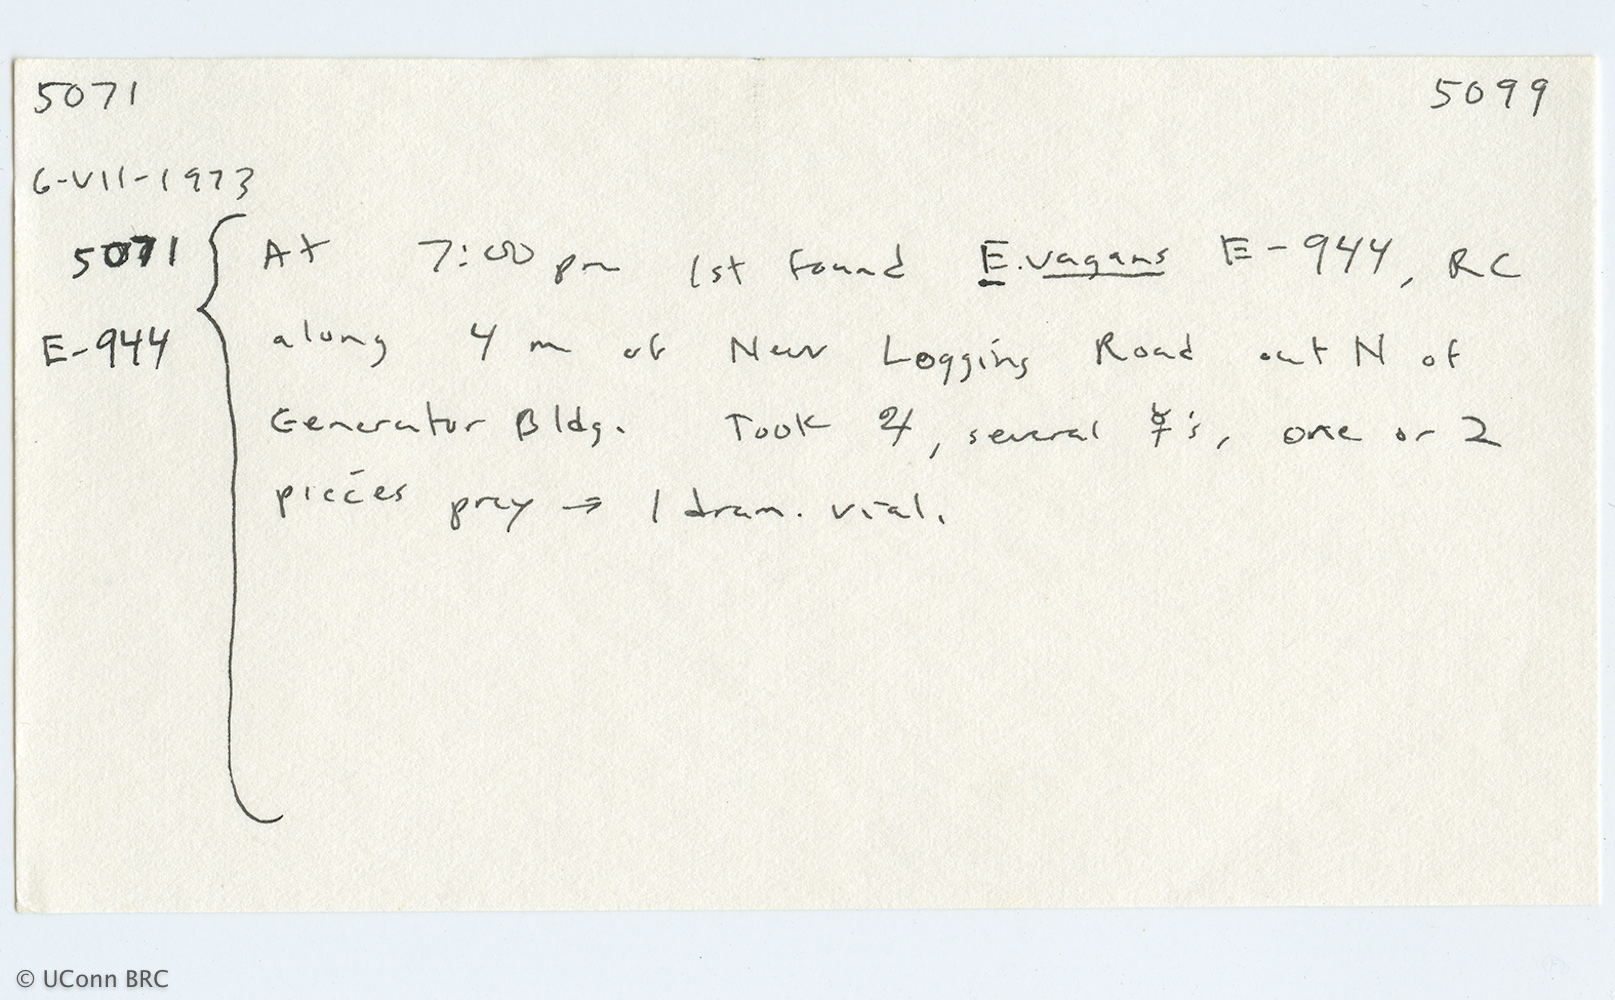 5071 5099
6-VII-1973
5071 At 7:00 pm 1st found E. vagans E-944, RC
E-944 along 4 m of New Logging Road out N of
Generator Bldg. Took 21, several ☿'s, one or 2
pieces prey → 1 dram. vial.
© UConn BRC